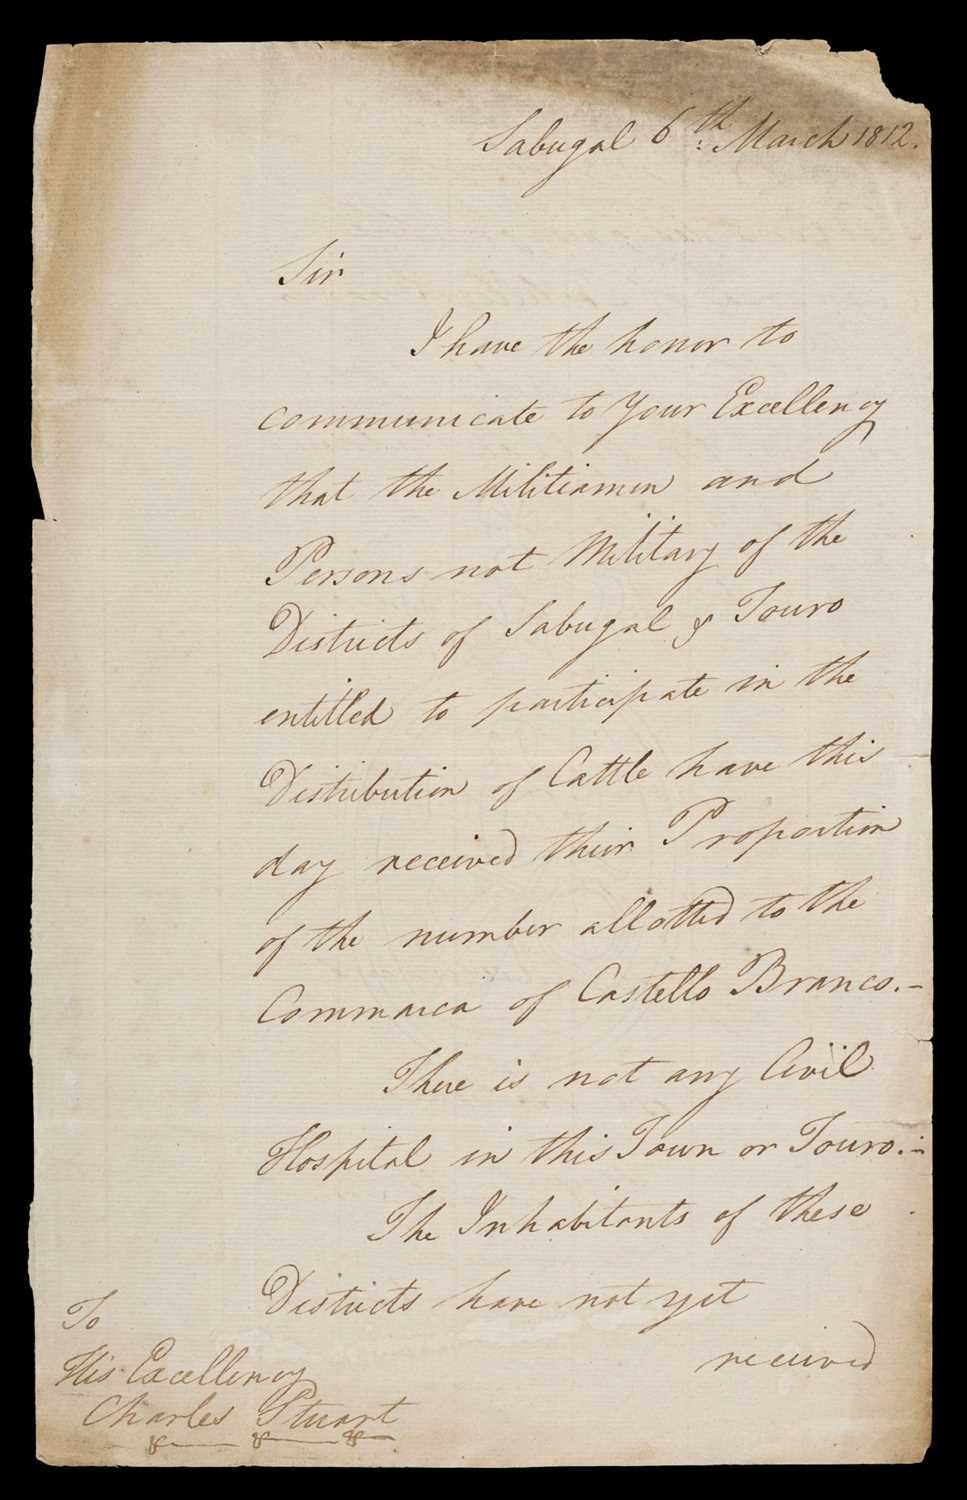 Sabugal 6th: March 1812.
Sir
I have the honor to
communicate to Your Excellency
that the Militiamen and
Persons not Military of the
Districts of Sabugal & Touro
entitled to participate in the
Distribution of Cattle have this
day received their Proportion
of the number allotted to the
Commarca of Castello Branco.-
There is not any Civil
Hospital in this Town or Touro.-
The Inhabitants of these
Districts have not yet
received
To
His Excellency
Charles Stuart
&— &— &—